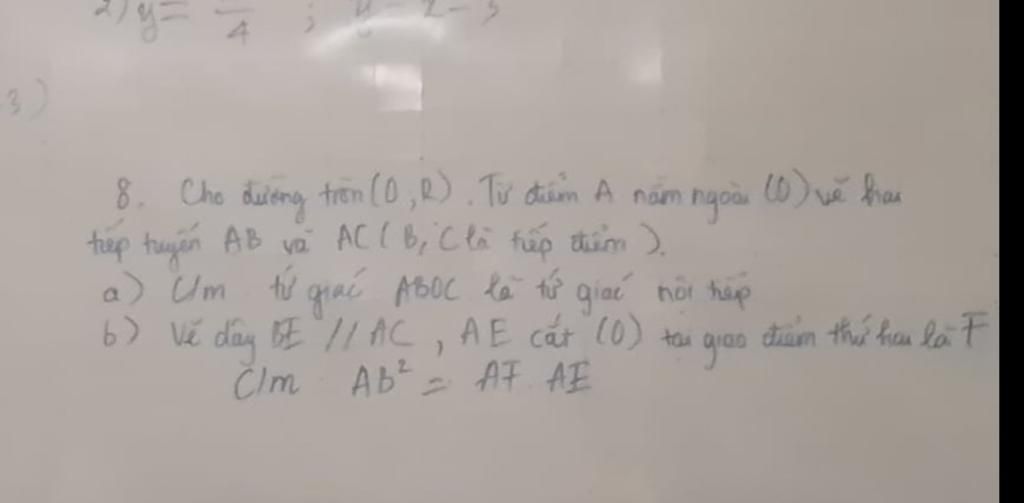 2) y = — 4 ; y = 2 - 3
3)
8. Cho đường tròn (O, R). Từ điểm A nằm ngoài (O) vẽ hai
tiếp tuyến AB và AC (B, C là tiếp điểm).
a) C/m tứ giác ABOC là tứ giác nội tiếp
b) Vẽ dây BE // AC, AE cắt (O) tại giao điểm thứ hai là F
C/m AB² = AF. AE